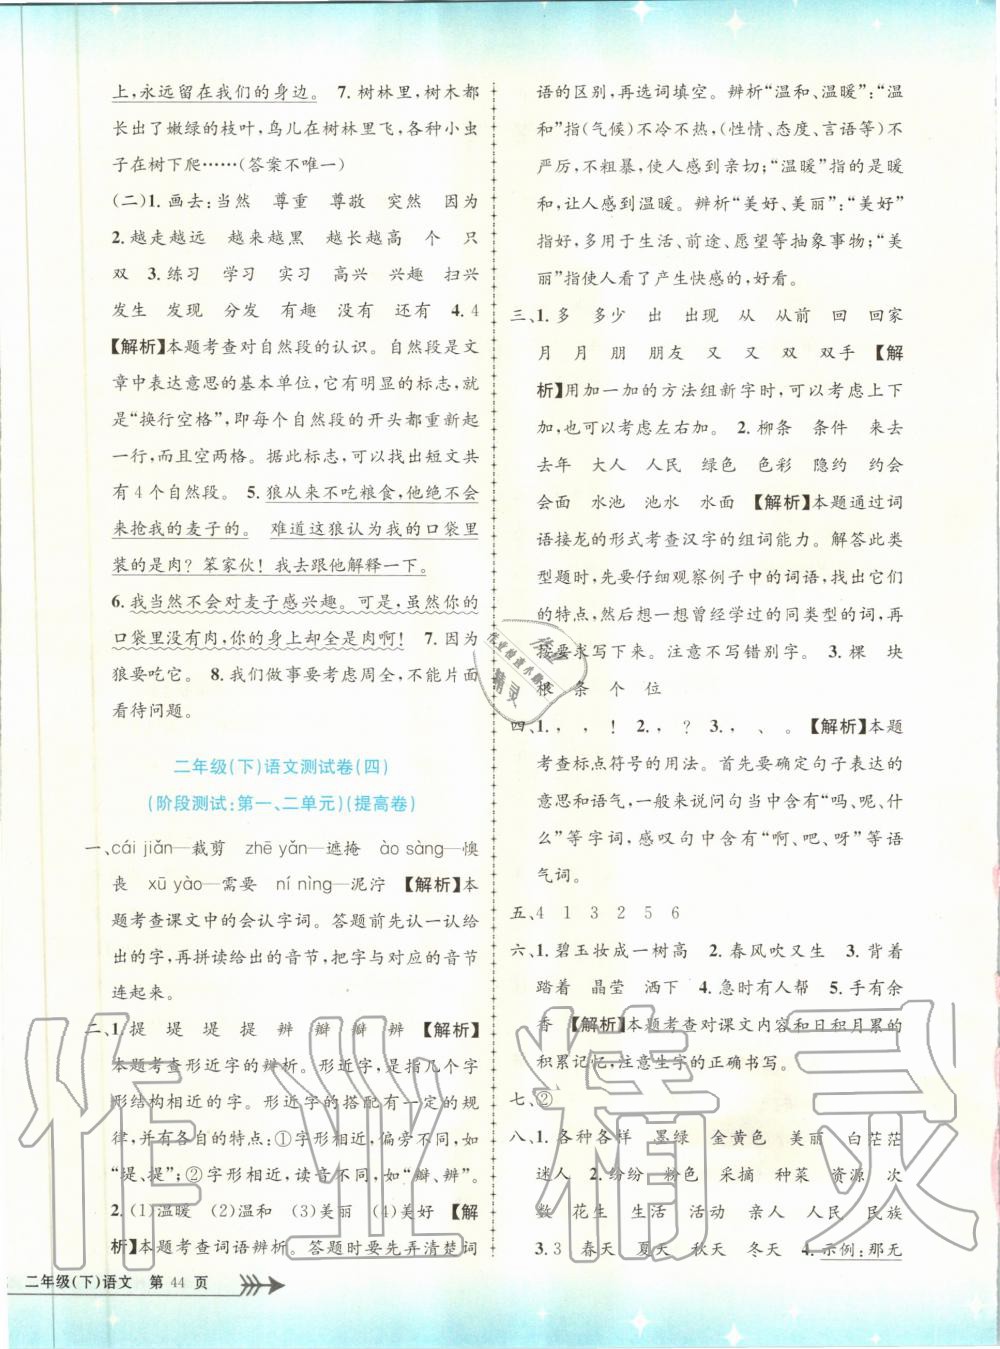 上,永远留在我们的身边。 7. 树林里,树木都
长出了嫩绿的枝叶,鸟儿在树林里飞,各种小虫
子在树下爬……(答案不唯一)
(二)1. 画去:当然 尊重 尊敬 突然 因为
2. 越走越远 越来越黑 越长越高 个 只
双 3. 练习 学习 实习 高兴 兴趣 扫兴
发生 发现 分发 有趣 没有 还有 4. 4
【解析】本题考查对自然段的认识。自然段是文
章中表达意思的基本单位,它有明显的标志,就
是“换行空格”,即每个自然段的开头都重新起
一行,而且空两格。据此标志,可以找出短文共
有 4 个自然段。 5. 狼从来不吃粮食,他绝不会
来抢我的麦子的。 难道这狼认为我的口袋里
装的是肉? 笨家伙! 我去跟他解释一下。
6. 我当然不会对麦子感兴趣。可是,虽然你的
口袋里没有肉,你的身上却全是肉啊! 7. 因为
狼要吃它。 8. 我们做事要考虑周全,不能片面
看待问题。
二年级(下)语文测试卷(四)
(阶段测试:第一、二单元)(提高卷)
一、cái jiǎn—裁剪 zhē yǎn—遮掩 ào sàng—懊
丧 xū yào—需要 ní nìng—泥泞 【解析】本
题考查课文中的会认字词。答题前先认一认给
出的字,再拼读给出的音节,把字与对应的音节
连起来。
二、1. 提 堤 堤 提 辨 辩 辩 辨 【解析】
本题考查形近字的辨析。形近字,是指几个字
形结构相近的字。形近字的搭配有一定的规
律,并有各自的特点:①字形相近,偏旁不同,如
“堤、提”;②字形相近,读音不同,如“瓣、辨”。
2. (1)温暖 (2)温和 (3)美丽 (4)美好 【解
析】本题考查词语辨析。答题时要先弄清楚词
二年级(下)语文 第 44 页
语的区别,再选词填空。辨析“温和、温暖”:“温
和”指(气候)不冷不热,(性情、态度、言语等)不
严厉,不粗暴,使人感到亲切;“温暖”指的是暖
和,让人感到温暖。辨析“美好、美丽”:“美好”
指好,多用于生活、前途、愿望等抽象事物;“美
丽”指使人看了产生快感的,好看。
三、1. 多 多少 出 出现 从 从前 回 回家
月 月 朋 朋友 又 又 双 双手 【解
析】用加一加的方法组新字时,可以考虑上下
加,也可以考虑左右加。 2. 柳条 条件 来去
去年 大人 人民 绿色 色彩 隐约 约会
会面 水池 池水 水面 【解析】本题通过词
语接龙的形式考查汉字的组词能力。解答此类
型题时,先要仔细观察例子中的词语,找出它们
的特点,然后想一想曾经学过的同类型的词,再
按要求写下来。注意不写错别字。 3. 棵 块
根 条 个 位
四、1. , , ! 2. , ? 3. , 、 。 【解析】本题
考查标点符号的用法。要确定句子所表达的
意思和语气,一般来说问句当中含有“吗、呢、什
么”等字词,感叹句中含有“啊、吧、呀”等语
气词。
五、4 1 3 2 5 6
六、1. 碧玉妆成一树高 2. 春风吹又生 3. 背着
踏着 晶莹 洒下 4. 急时有人帮 5. 手有余
香 【解析】本题考查对课文内容和日积月累的
积累记忆,注意生字的正确书写。
七、②
八、1. 各种各样 墨绿 金黄色 美丽 白茫茫
迷人 2. 纷纷 粉色 采摘 种菜 资源 次
数 花生 生活 活动 亲人 人民 民族
3. 3 春天 夏天 秋天 冬天 4. 示例:那无
作业精灵